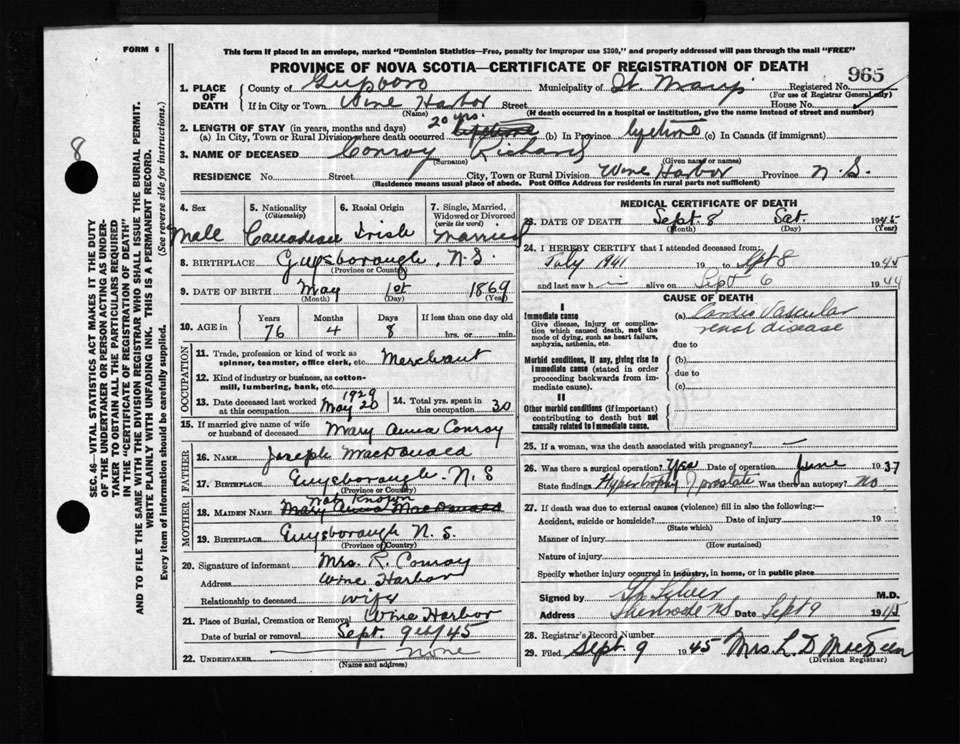 8
SEC. 46—VITAL STATISTICS ACT MAKES IT THE DUTY
OF THE UNDERTAKER OR PERSON ACTING AS UNDER-
TAKER TO OBTAIN ALL THE PARTICULARS REQUIRED
IN THE "CERTIFICATE OF REGISTRATION OF DEATH"
AND TO FILE THE SAME WITH THE DIVISION REGISTRAR WHO SHALL ISSUE THE BURIAL PERMIT.
WRITE PLAINLY WITH UNFADING INK. THIS IS A PERMANENT RECORD.
Every item of information should be carefully supplied. (See reverse side for instructions.)
FORM 6
This form if placed in an envelope, marked "Dominion Statistics—Free, penalty for improper use $300," and properly addressed will pass through the mail "FREE"
PROVINCE OF NOVA SCOTIA—CERTIFICATE OF REGISTRATION OF DEATH
965
1. PLACE OF DEATH County of Guysboro Municipality of St. Mary's Registered No.
(For use of Registrar General only)
If in City or Town Wine Harbor Street House No.
(Name) (If death occurred in a hospital or institution, give the name instead of street and number)
2. LENGTH OF STAY (in years, months and days)
(a) In City, Town or Rural Division where death occurred 20 yrs. lifetime (b) In Province lifetime (c) In Canada (if immigrant)
3. NAME OF DECEASED Conroy Richard
(Surname) (Given name or names)
RESIDENCE No. Street City, Town or Rural Division Wine Harbor Province N.S.
(Residence means usual place of abode. Post Office Address for residents in rural parts not sufficient)
4. Sex Male
5. Nationality (Citizenship) Canadian
6. Racial Origin Irish
7. Single, Married, Widowed or Divorced (write the word) Married
8. BIRTHPLACE Guysborough, N.S.
(Province or Country)
9. DATE OF BIRTH May 1st 1869
(Month) (Day) (Year)
10. AGE in Years 76 Months 4 Days 8 If less than one day old hrs. or min.
OCCUPATION
11. Trade, profession or kind of work as spinner, teamster, office clerk, etc. Merchant
12. Kind of industry or business, as cotton-mill, lumbering, bank, etc.
13. Date deceased last worked at this occupation May 20 1929
14. Total yrs. spent in this occupation 30
15. If married give name of wife or husband of deceased Mary Anna Conroy
FATHER
16. NAME Joseph MacDonald
17. BIRTHPLACE Guysborough N.S
(Province or Country)
MOTHER
18. MAIDEN NAME Not Known Mary Anna MacDonald
19. BIRTHPLACE Guysborough N.S.
(Province or Country)
20. Signature of informant Mrs. R. Conroy
Address Wine Harbor
Relationship to deceased wife
21. Place of Burial, Cremation or Removal Wine Harbor
Date of burial or removal Sept. 9th/45
22. UNDERTAKER none
(Name and address)
MEDICAL CERTIFICATE OF DEATH
23. DATE OF DEATH Sept. 8 Sat. 1945
(Month) (Day) (Year)
24. I HEREBY CERTIFY that I attended deceased from:
July 1941 19 to Sept 8 1944
and last saw h im alive on Sept 6 1944
CAUSE OF DEATH
I
Immediate cause
Give disease, injury or complication which caused death, not the mode of dying, such as heart failure, asphyxia, asthenia, etc.
(a) Cardio Vascular
renal disease
due to
Morbid conditions, if any, giving rise to immediate cause (stated in order proceeding backwards from immediate cause).
(b)
due to
(c)
II
Other morbid conditions (if important) contributing to death but not causally related to immediate cause.
25. If a woman, was the death associated with pregnancy? —
26. Was there a surgical operation? Yes Date of operation June 1937
State findings Hypertrophy of prostate Was there an autopsy? No
27. If death was due to external causes (violence) fill in also the following:—
Accident, suicide or homicide? Date of injury 19
(State which)
Manner of injury
(How sustained)
Nature of injury
Specify whether injury occurred in industry, in home, or in public place
Signed by Silver M.D.
Address Sherbrooke NS Date Sept 9 194
28. Registrar's Record Number
29. Filed Sept. 9 1945 Mrs. L. D. MacKeen
(Division Registrar)